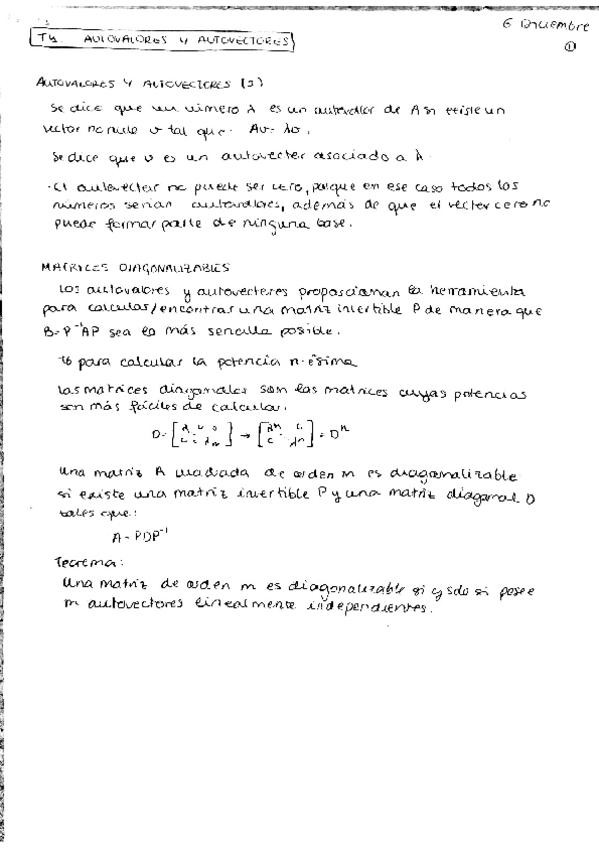 6 Diciembre
1
T4. AUTOVALORES Y AUTOVECTORES
AUTOVALORES Y AUTOVECTORES (2)
Se dice que un número λ es un autovalor de A si existe un
vector no nulo v tal que: Av = λv.
Se dice que v es un autovector asociado a λ
· El autovector no puede ser cero, porque en ese caso todos los
números serían autovalores, además de que el vector cero no
puede formar parte de ninguna base.
MATRICES DIAGONALIZABLES
Los autovalores y autovectores proporcionan la herramienta
para calcular/encontrar una matriz invertible P de manera que
B = P⁻¹AP sea lo más sencilla posible.
para calcular la potencia n-ésima
Las matrices diagonales son las matrices cuyas potencias
son más fáciles de calcular.
D = → = Dⁿ
Una matriz A cuadrada de orden m es diagonalizable
si existe una matriz invertible P y una matriz diagonal D
tales que:
A = PDP⁻¹
Teorema:
Una matriz de orden m es diagonalizable si y solo si posee
m autovectores linealmente independientes.